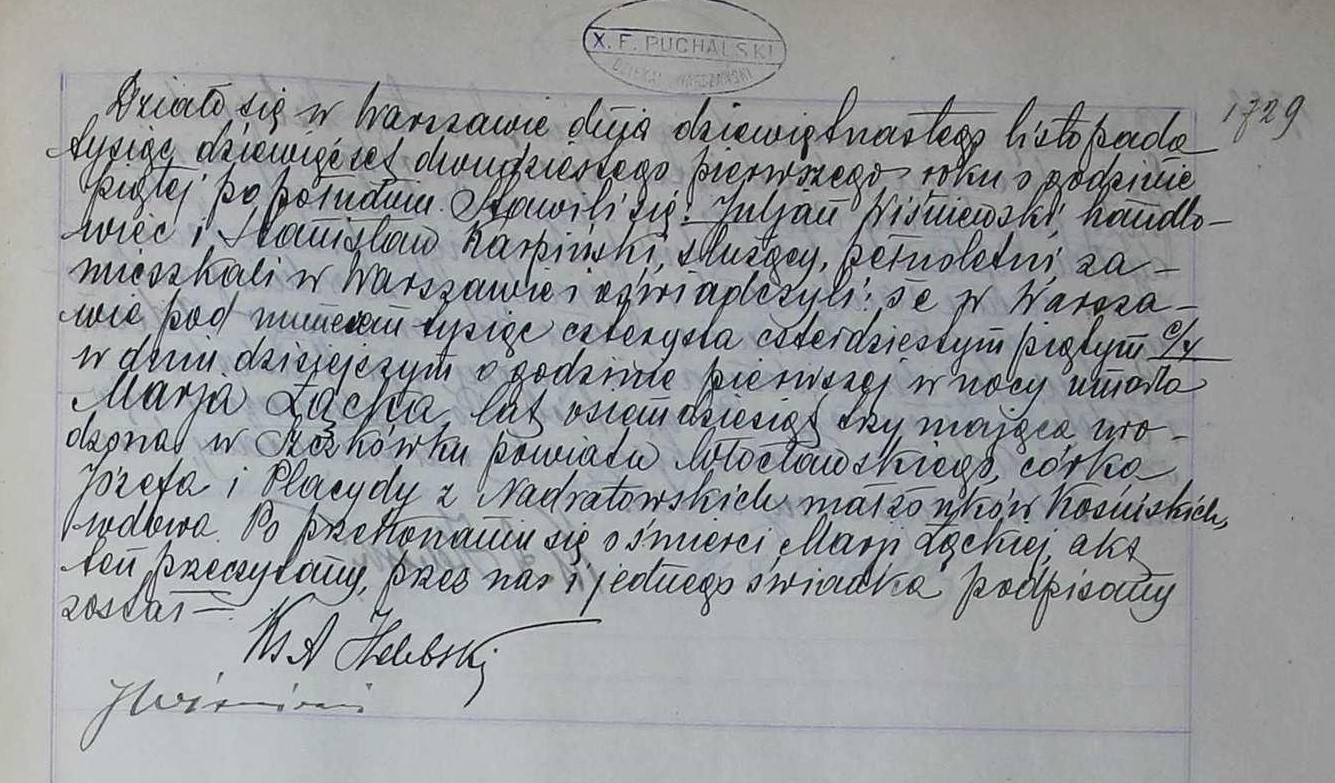 X. F. PUCHALSKI
DZIEKAN WARSZAWSKI
1729
Działo się w Warszawie dnia dziewiętnastego listopada
tysiąc dziewięćset dwudziestego pierwszego roku o godzinie
piątej po południu. Stawili się: Juljan Wiśniewski, handlo-
wiec i Stanisław Karpiński, służący, pełnoletni, za-
mieszkali w Warszawie i oświadczyli: że w Warsza-
wie pod numerem tysiąc czterysta czterdziestym piątym
w dniu dzisiejszym o godzinie pierwszej w nocy umarła
Marja Łącka, lat osiemdziesiąt trzy mająca, uro-
dzona w powiatu Włocławskiego, córka
Józefa i Placydy z Nadratowskich małżonków Kosińskich,
wdowa. Po przekonaniu się o śmierci Marji Łąckiej, akt
ten przeczytany, przez nas i jednego świadka podpisany
został —.
Ks A
JWiśniewski